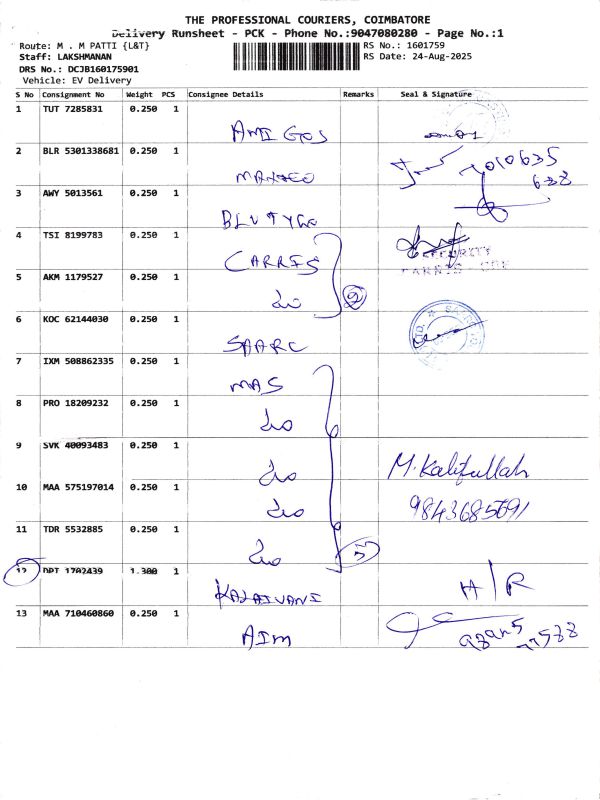 THE PROFESSIONAL COURIERS, COIMBATORE
Delivery Runsheet - PCK - Phone No.:9047080280 - Page No.:1
Route: M . M PATTI {L&T}
RS No.: 1601759
Staff: LAKSHMANAN
RS Date: 24-Aug-2025
DRS No.: DCJB160175901
Vehicle: EV Delivery
S No Consignment No Weight PCS Consignee Details Remarks Seal & Signature
1 TUT 7285831 0.250 1
AMIGOS
2 BLR 5301338681 0.250 1
3 AWY 5013561 0.250 1
4 TSI 8199783 0.250 1
CARRIS
SECURITY
5 AKM 1179527 0.250 1
do
6 KOC 62144030 0.250 1
SAARC
7 IXM 508862335 0.250 1
MAS
8 PRO 18209232 0.250 1
do
9 SVK 40093483 0.250 1
do M. Kalifullah
10 MAA 575197014 0.250 1
do
11 TDR 5532885 0.250 1
do
12 DPT 1702439 1.300 1
KALAIVANI H/R
13 MAA 710460860 0.250 1
AIM